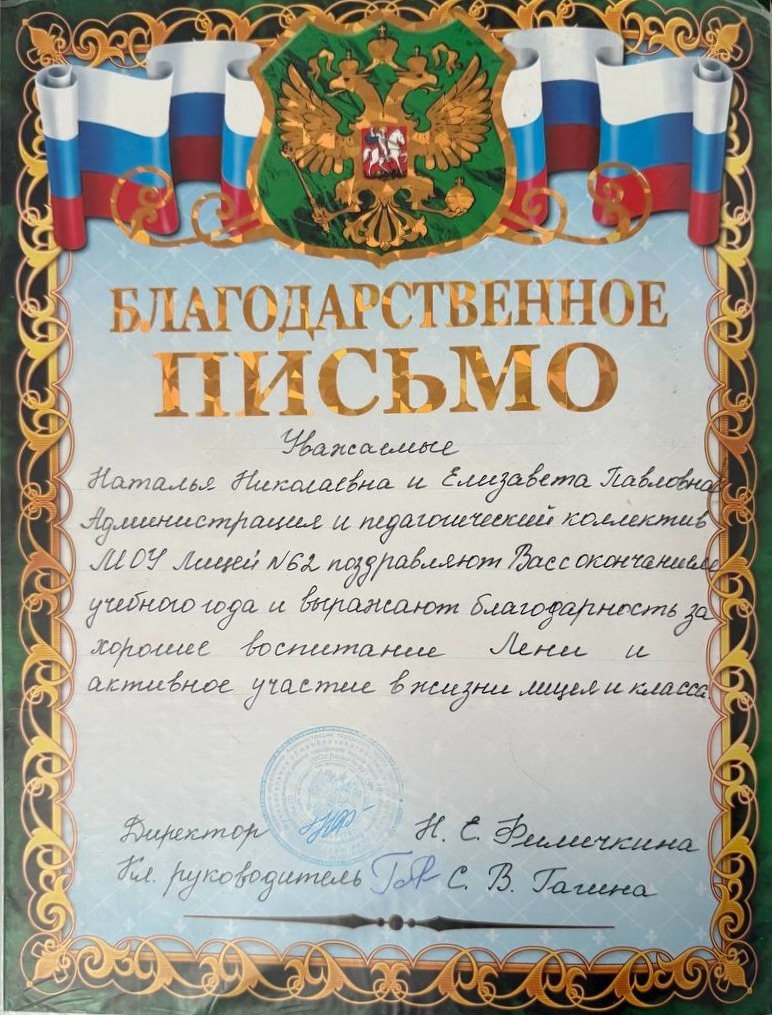 БЛАГОДАРСТВЕННОЕ
ПИСЬМО
Уважаемые
Наталья Николаевна и Елизавета Павловна
Администрация и педагогический коллектив
МОУ Лицей №62 поздравляют Вас с окончанием
учебного года и выражают благодарность за
хорошее воспитание Лени и
активное участие в жизни лицея и класса.
Директор Н. Е. Филичкина
Кл. руководитель С. В. Гагина